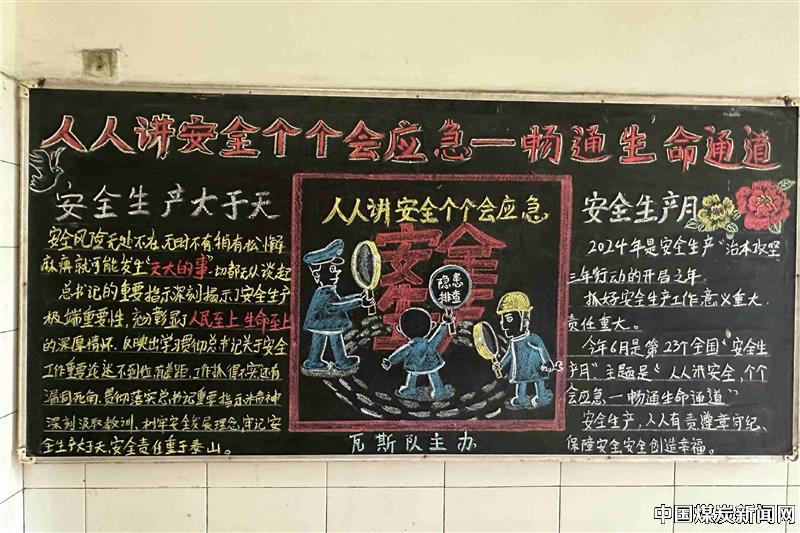 人人讲安全个个会应急—畅通生命通道
安全生产大于天
安全风险无处不在,无时不有,稍有松懈
麻痹就可能发生“天大的事”一切都无从谈起
总书记的重要指示深刻揭示了安全生产
极端重要性,充分彰显了人民至上,生命至上
的深厚情怀,反映出学习贯彻总书记关于安全
工作重要论述不到位,有差距,工作抓得不实,还有
漏洞死角,贯彻落实总书记重要指示批示精神
深刻汲取教训,树牢安全发展理念,牢记安
全生产大于天,安全责任重于泰山。
人人讲安全个个会应急
安全
生产
隐患
排查
瓦斯队主办
安全生产月
2024年是安全生产“治本攻坚
三年行动的开局之年,
抓好安全生产工作,意义重大,
责任重大。
今年6月是第23个全国“安全生
产月”,主题是“人人讲安全,个个
会应急—畅通生命通道”
安全生产,人人有责,遵章守纪、
保障安全,安全创造幸福。
中国煤炭新闻网